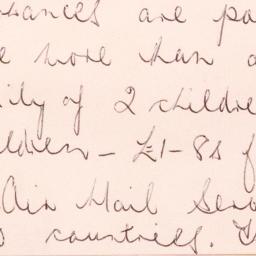 owances are pa
e more than o
ily of 2 childre
ldren - £1-8s f
Air Mail Serv
countries. T